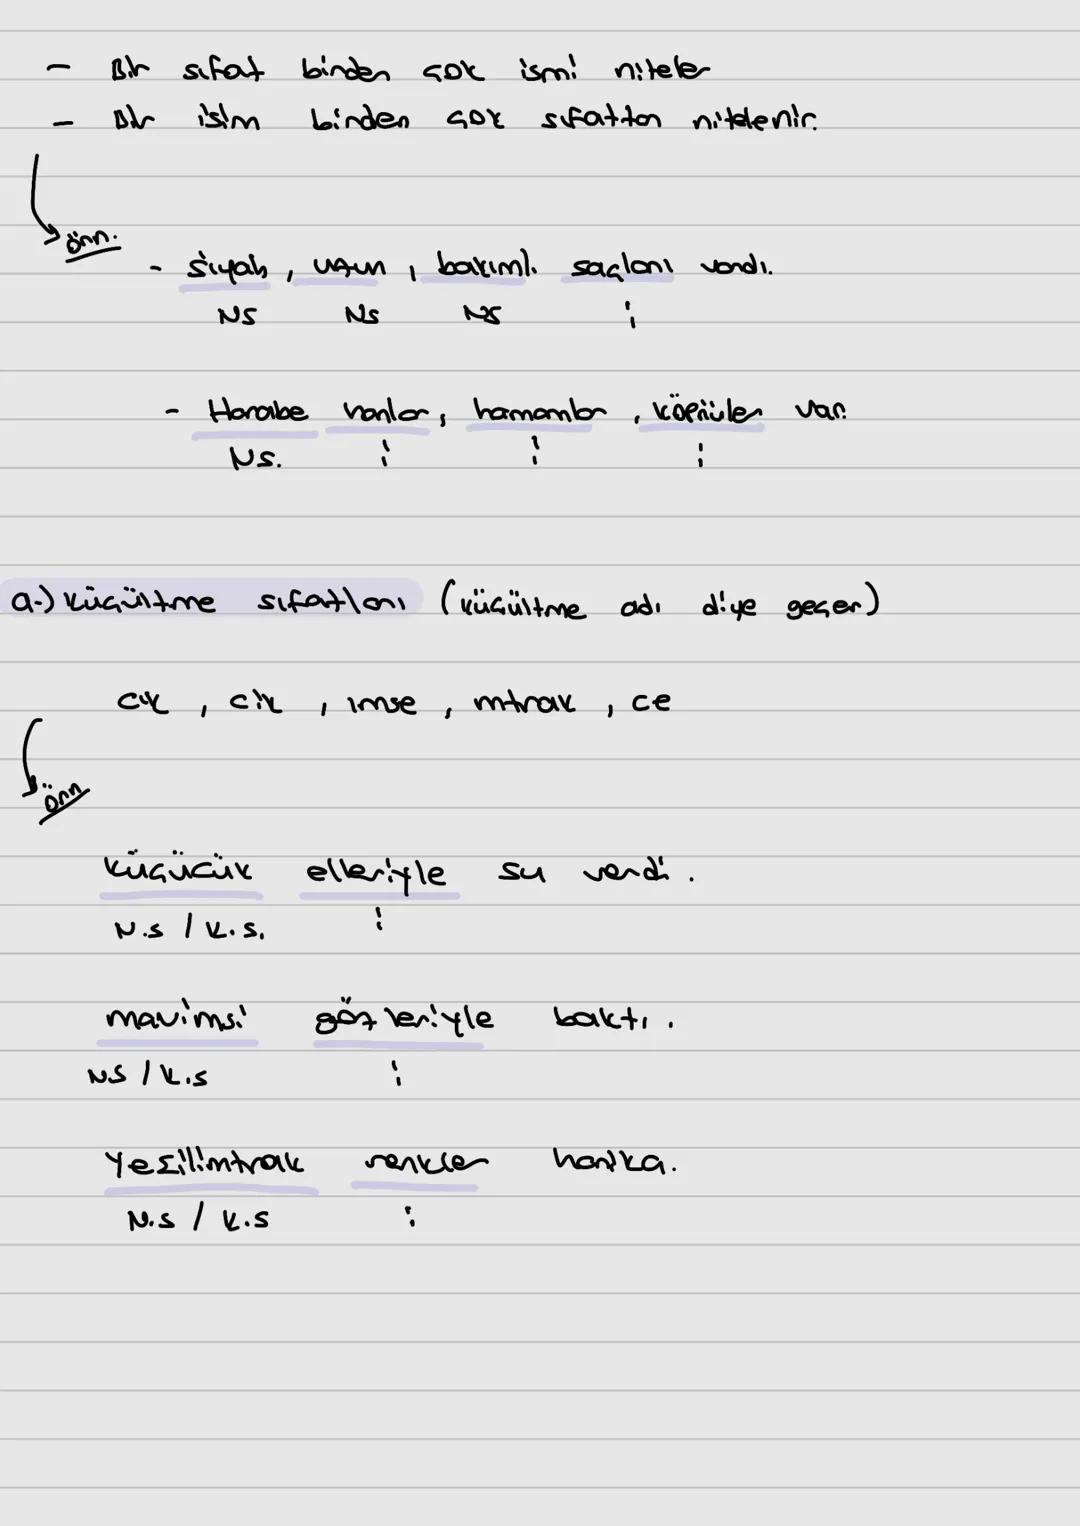 - Bir sıfat binden çok ismi niteler
- Bir isim binden çok sıfattan nitelenir.
örn.
- Siyah, uzun, bakımlı saçları vardı.
NS NS NS i
- Harabe hanlar, hamamlar, köprüler var.
NS. i i i
a-) Küçültme sıfatları (küçültme adı diye geçer)
cık, cik, ımse, mtrak, ce
örn
Küçücük elleriyle su verdi.
N.S / K.S. i
mavimsi gözleriyle baktı.
N.S / K.S i
Yeşilimtrak renkler harika.
N.S / K.S i